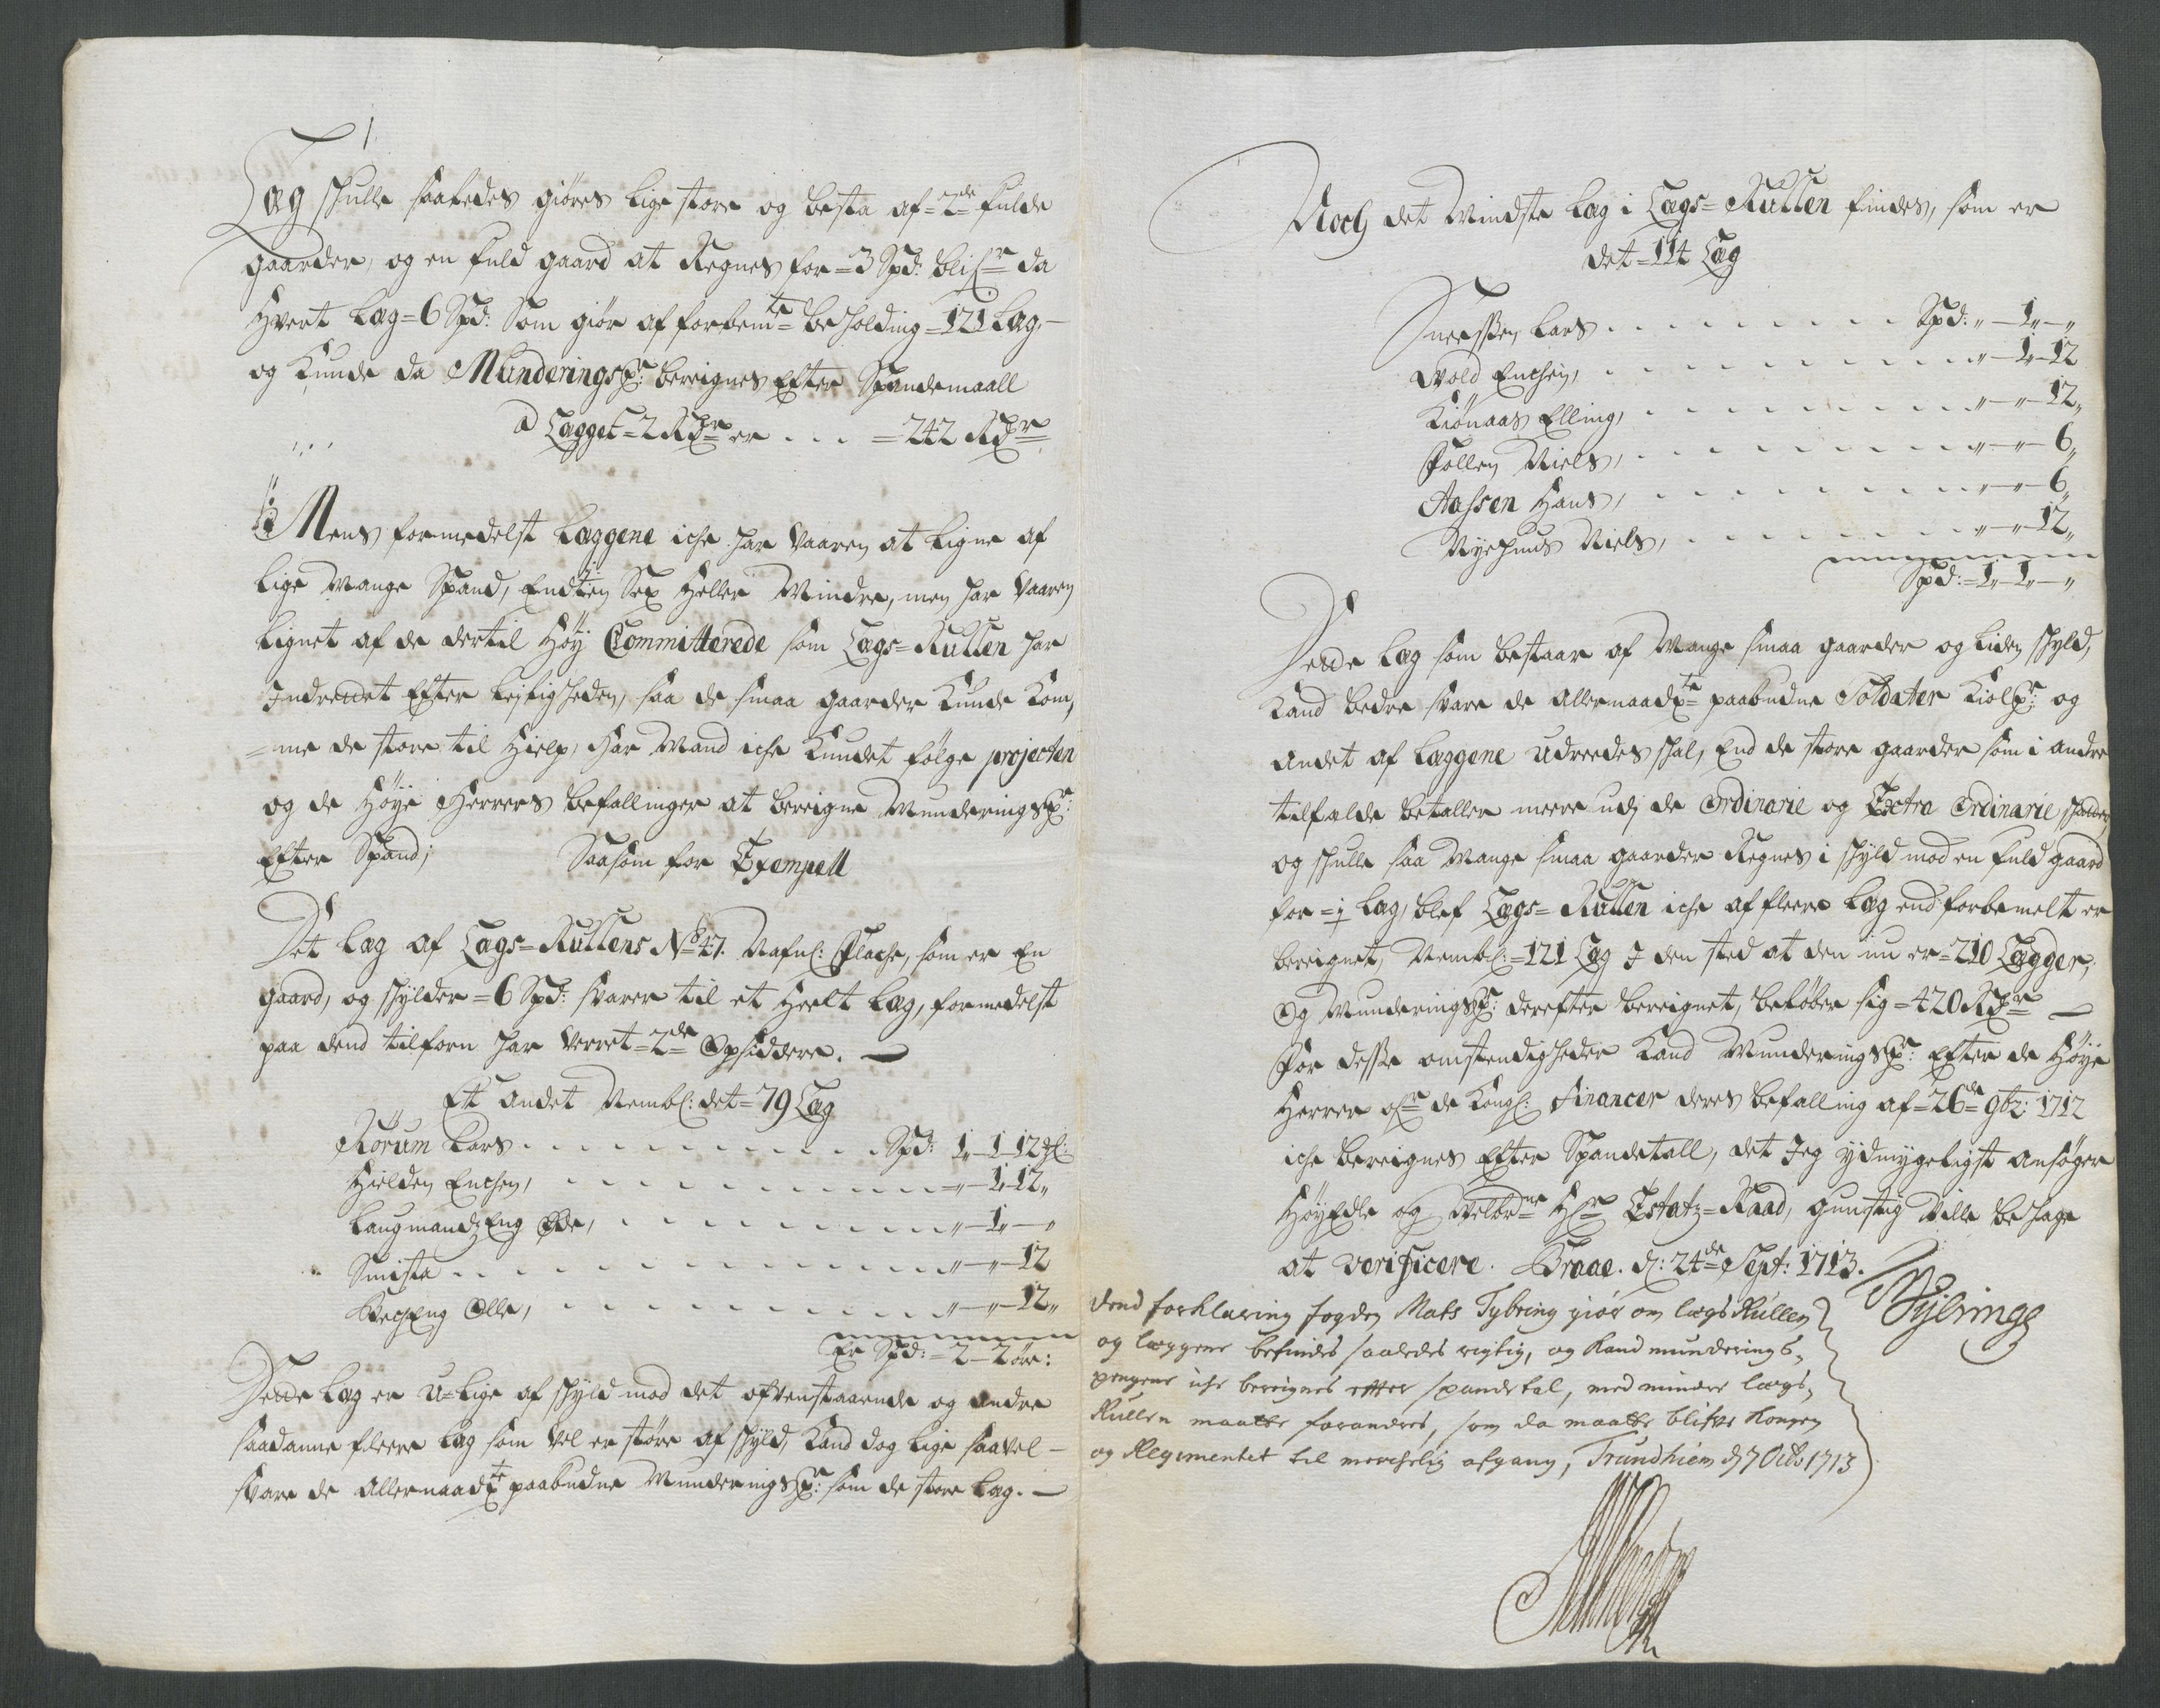 Læg schulle saaledes giøres lige store og bestaa af = 2de fulde
gaarder, og en fuld gaard at Regnes for = 3 Spd: blifr da
Hvert Læg = 6 Spd: Som giør af forbemte beholding = 121 Læg, —
og Kunde da Munderingspe: bereignes efter Spandemaall
a Lægget = 2 Rdr er . . . = 242 Rdr
Mens formedelst Læggene iche har Vaaren at Ligne af
lige Mange Spand, Endten Sex Heller Mindre, men har Vaaren
Lignet af de dertil Høy Committerede som Lægs = Rullen har
Indrettet efter lejligheden, saa de smaa gaarder Kunde Kom,
= me de store til Hielp, Har Mand iche Kundet følge projecten
og de Høye Herrers befallinger at bereigne Munderingspe:
efter Spand; Saasom for Exempell
Det Læg af Lægs = Rullens No 47. Nafnl: Flache, som er En
gaard, og schylder = 6 Spd: svarer til et Heelt Læg, formedelst
paa dend tilforn har Verret = 2de Opsiddere. —
Ett andet Nembl: det = 79 Læg
Rörum Lars . . . . . . . . . . Spd: 1 — 1 12 Ml:
Hielden Enchen, . . . . . . . . . . = " — 1 — 12 "
Laugmandz Eng Øde, . . . . . . . . . . " — 1 — "
Smista . . . . . . . . . . " — " — 12
Becheng Olle, . . . . . . . . . . " — " — 12 "
Er Spd: = 2 — 2 öre:
Dette Læg er U = lige af schyld mod det ofvenstaaende og andre
saadanne fleere Læg som Vel er støre af schyld, Kand dog lige saavel —
svare de allernaadte paabudne Munderingspe: som de store Læg. —
Noch det Mindste Læg i Lægs = Rullen findes, som er
det = 114 Læg
Sneessen Lars . . . . . . . . . . Spd: " — 1 — "
Wold Enchen, . . . . . . . . . . " — 1 — 12
Kiönaas Elling, . . . . . . . . . . " — " — 12 "
Follen Niels, . . . . . . . . . . " — " — 6 "
Aassen Hans, . . . . . . . . . . " — " — 6 "
Nyehuus Niels, . . . . . . . . . . " — " — 12 "
Spd: = 1 — 1 — "
Dette Læg som bestaar af Mange smaa gaarder og liden schyld,
Kand bedre svare de allernaadte paabudne Soldater Kiolpe: og
andet af Læggene udreedes schal, End de store gaarder som i andre
tilfalde betaller meere udj de Ordinarie og Extra Ordinarie schatter,
og schulle saa Mange smaa gaarder Regnes i schyld mod en fuld gaard
for = 1 Læg, blef Lægs = Rullen iche af fleere Læg end forbemelt er
bereignet, Nembl: = 121 Læg I den sted at den nu er = 210 Lægger,
Og Munderingspe: derefter bereignet, beløber sig = 420 Rdr —
For desse omstendigheder Kand Munderingspe: efter de Høye
Herrer ofr de Kongl: Financer deres befalling af = 26de 9br: 1712
iche bereignes Efter Spandetall, det Jeg ydmygeligst ansøger
HøyEdle og Welbrne Hr Estatz = Raad, gunstig Ville behage
at verificere. Braae. d: 24de Sept: 1713.
MTybring
dend forklaring fogden Mats Tybring giør om lægs Rullen
og læggene befindes saaledes rigtig, og Kand munderings,
pengene iche bereignes efter spandetal, med mindre lægs,
Rullen maatte forandres, som da maatte blifve Kongen
og Regimentet til merchelig afgang, Trundhiem d 7 Octb 1713